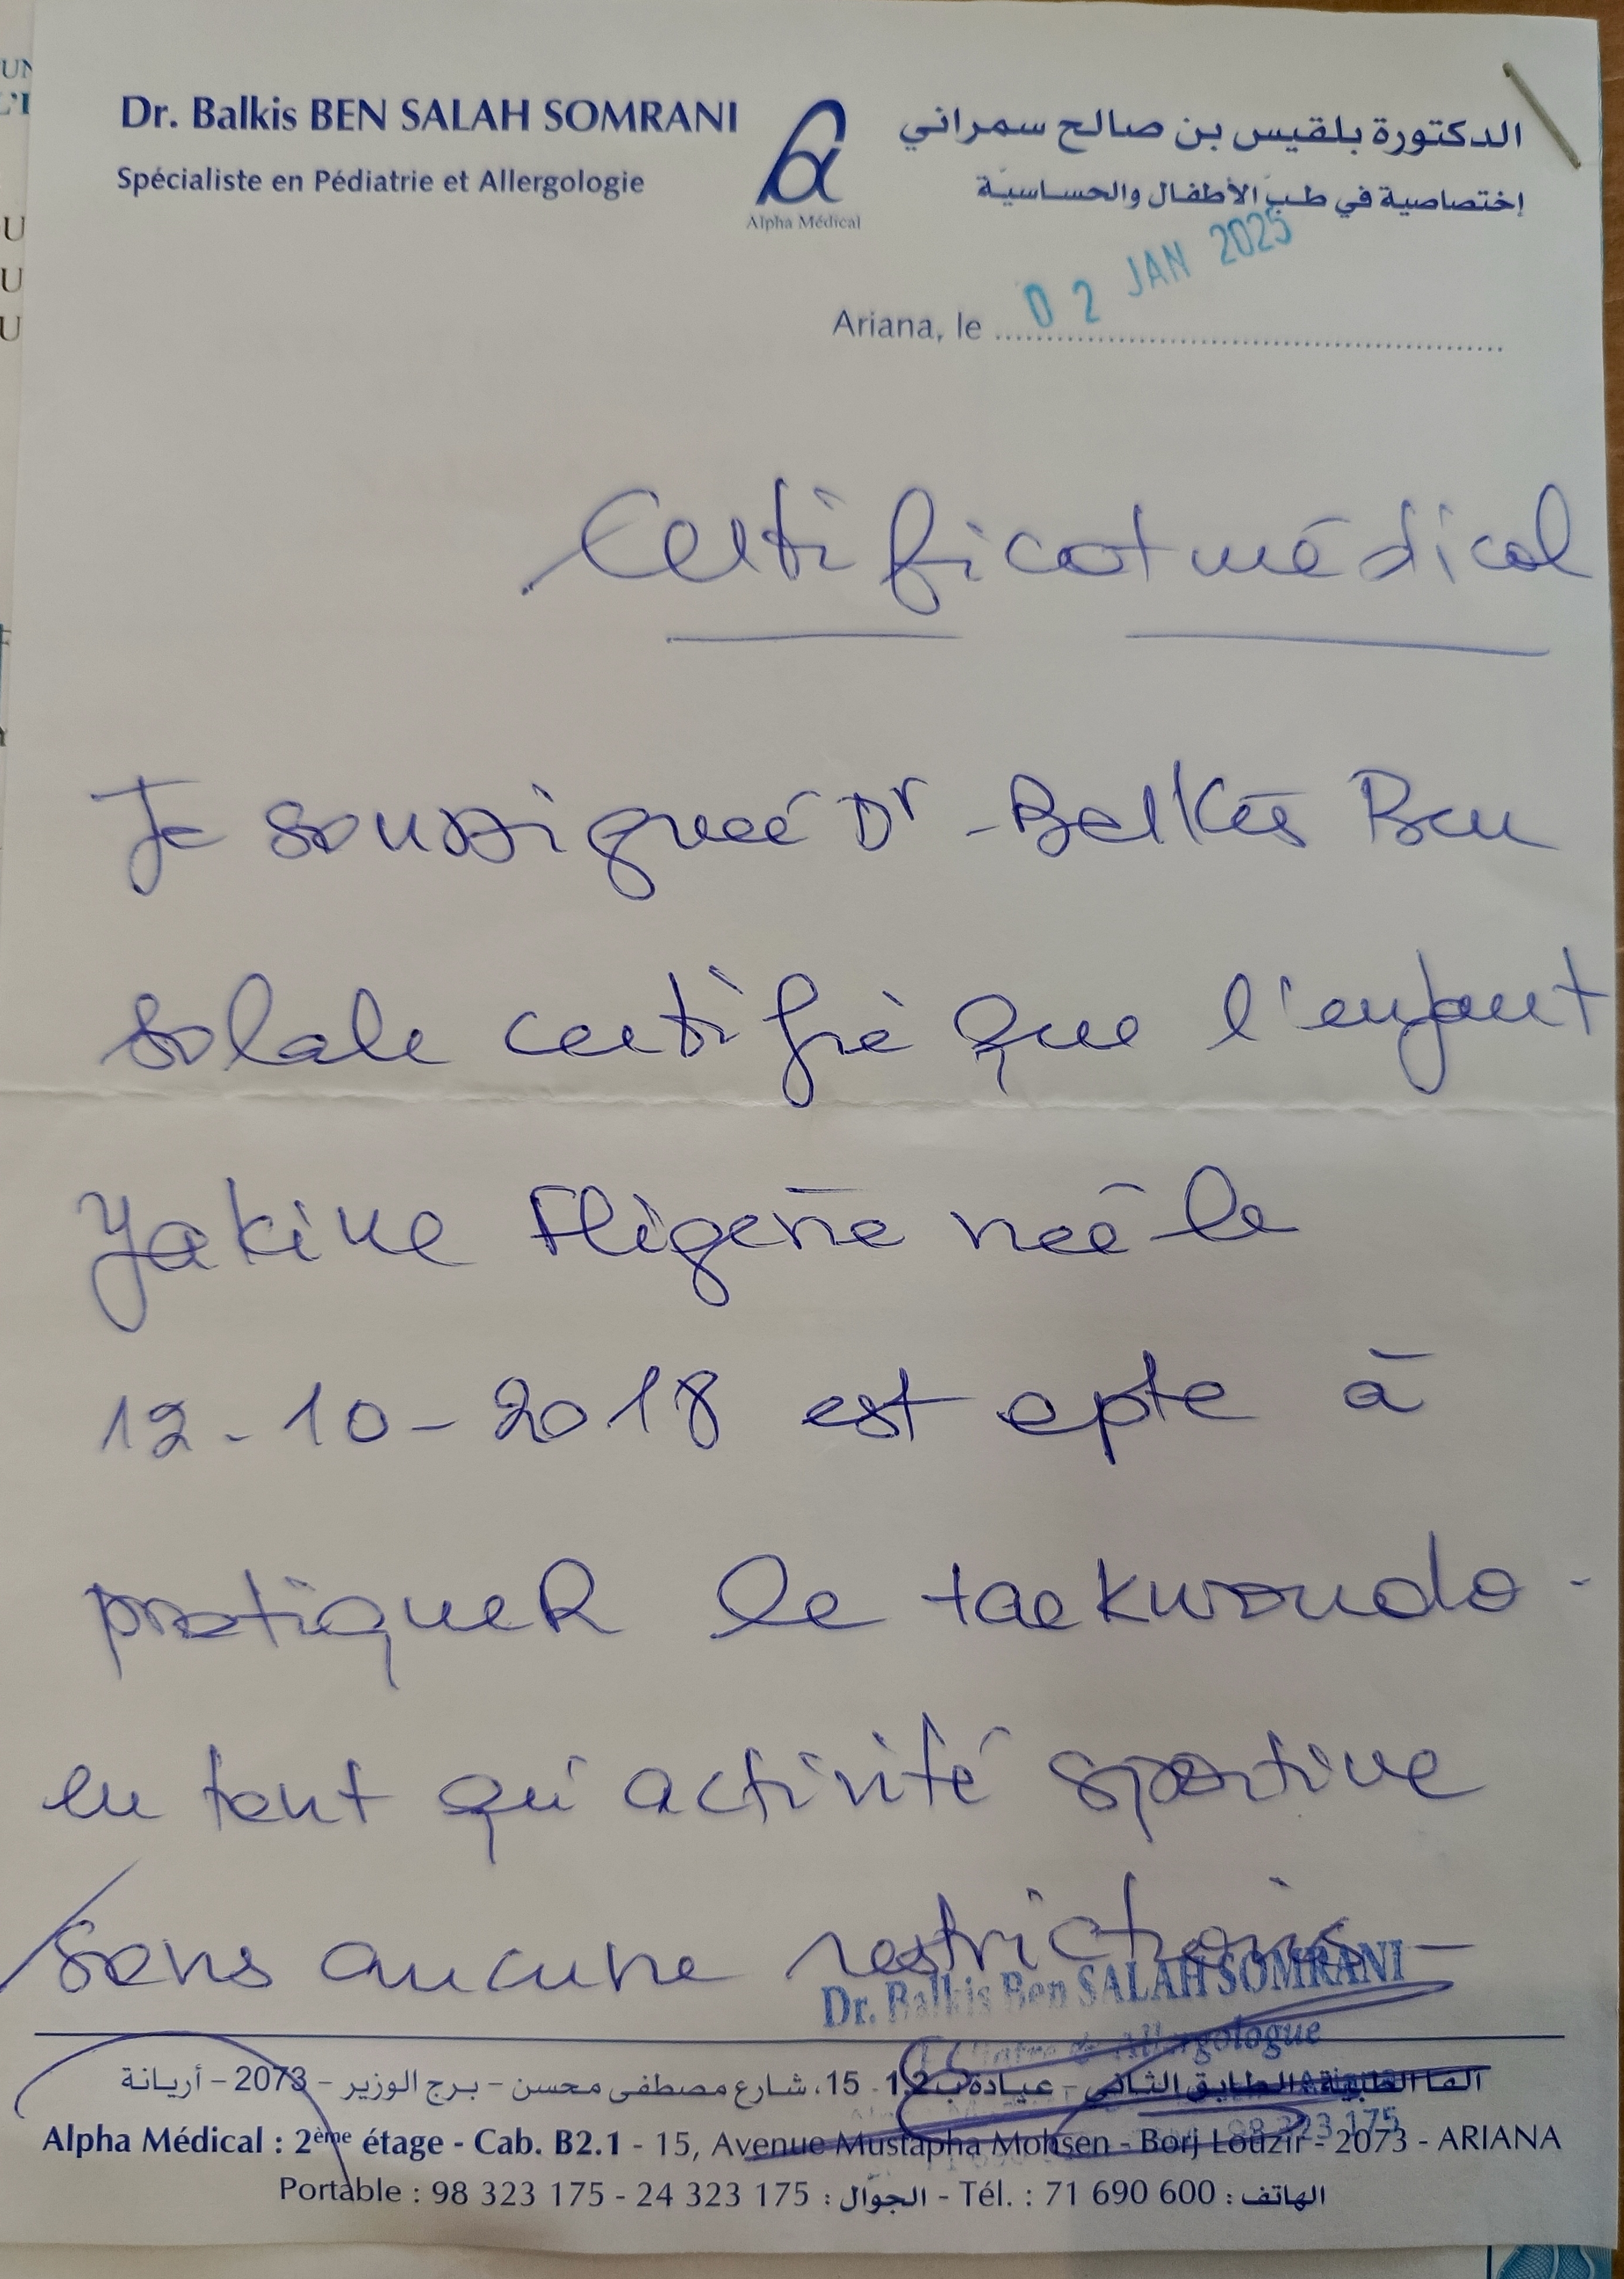 Dr. Balkis BEN SALAH SOMRANI
Spécialiste en Pédiatrie et Allergologie
Alpha Médical
الدكتورة بلقيس بن صالح سمراني
إختصاصية في طبّ الأطفال والحساسيّة
Ariana, le 02 JAN 2025
Certificat médical
Je soussignée Dr Balkis Ben
Salah certifie que l'enfant
Yakine née le
12-10-2018 est apte à
pratiquer le taekwondo
en tant qu'activité sportive
sans aucune restrictions
Dr. Balkis Ben SALAH SOMRANI
Allergologue
ألفا الطبية، الطابق الثاني - عيادة ب 1.2 - 15، شارع مصطفى محسن - برج الوزير - 2073 - أريانة
Alpha Médical : 2ème étage - Cab. B2.1 - 15, Avenue Mustapha Mohsen - Borj Louzir - 2073 - ARIANA
Portable : 98 323 175 - 24 323 175 : الجوّال - Tél. : 71 690 600 : الهاتف